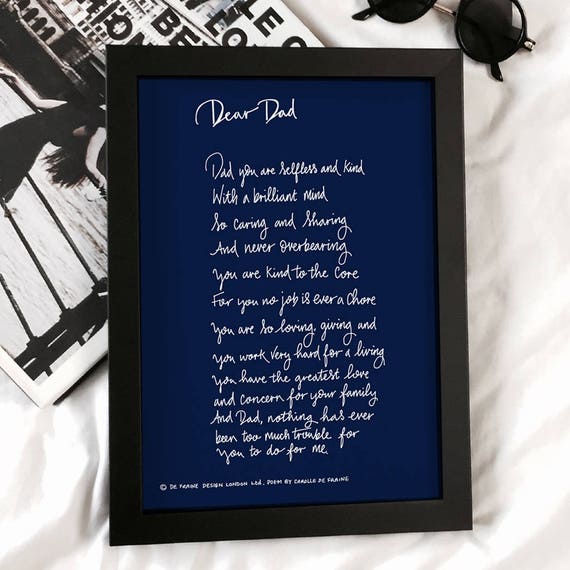 Dear Dad
Dad you are selfless and kind
With a brilliant mind
So caring and sharing
And never overbearing
You are kind to the core
For you no job is ever a chore
You are so loving, giving and
you work very hard for a living
You have the greatest love
and concern for your family
And Dad, nothing has ever
been too much trouble for
you to do for me.
© DE FRAINE DESIGN LONDON Ltd. POEM BY CAROLLE DE FRAINE